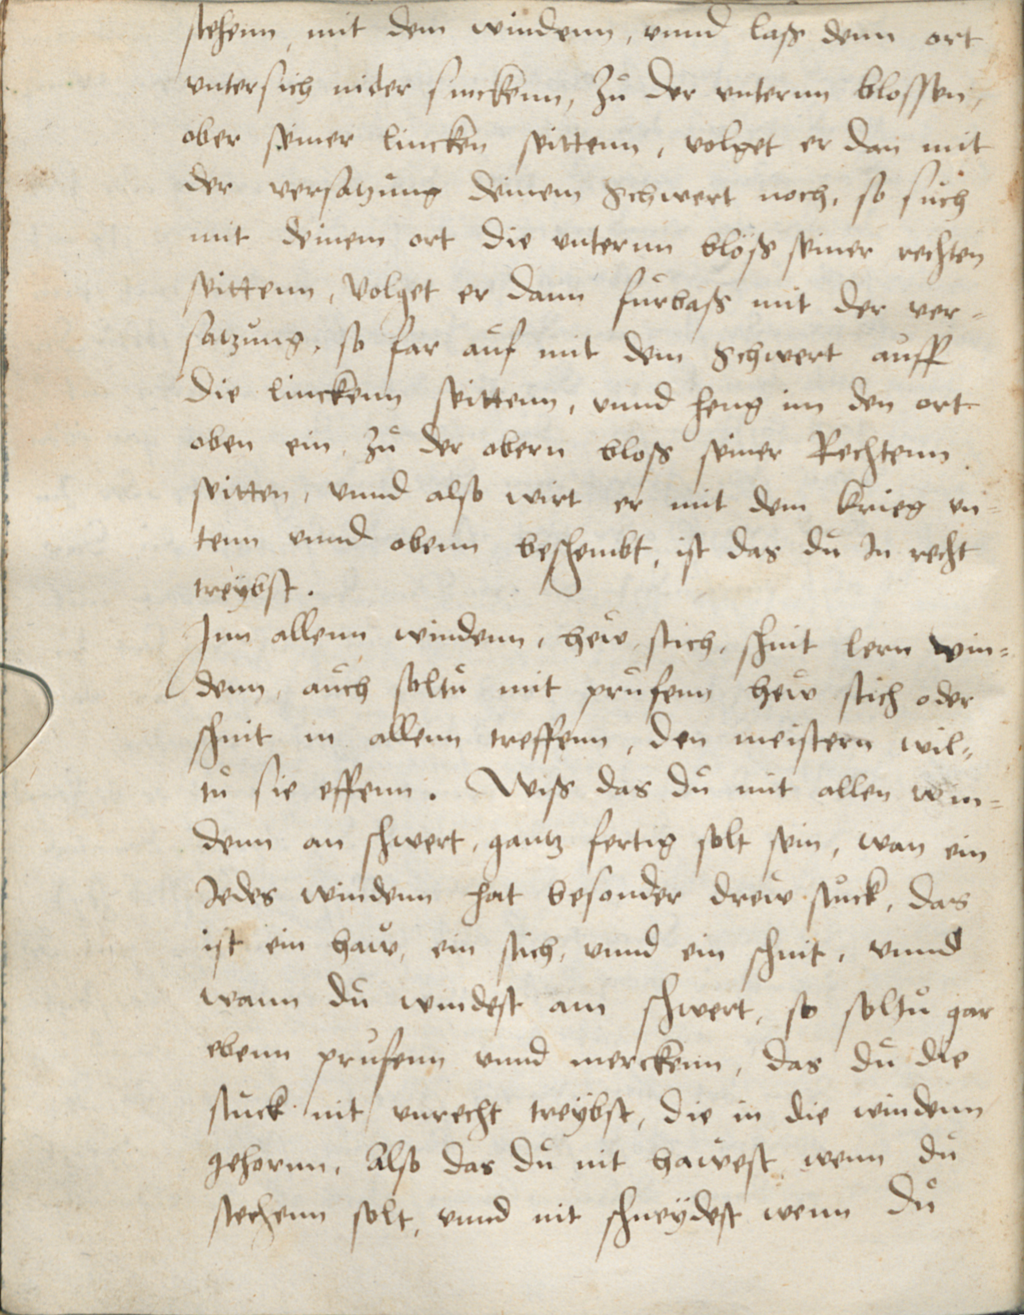 stehenn, mit dem windenn, vnnd laß denn ort
vntersich nider sinckenn, zů der vnternn blossen,
ober seiner lincken seittenn, volget er dan mit
der versatzůng deinem Schwert noch, so sůch
mit deinem ort die vnternn blöß seiner rechten
seittenn, Volget er dann fůrbaß mit der ver-
satzůng, so far aůf mit dem Schwert aůff
die linckenn seittenn, vnnd heng im den ort
oben ein, zů der obern bloß seiner Rechtenn
seitten, vnnd also wirt er mit dem krieg vn-
tenn vnnd obenn beschembt, ist das dů In recht
treÿbst.
Inn allenn windenn, heẘ, stich, schnit lern win=
denn, aůch soltů mit průfenn heẘ stich oder
schnit in allenn treffenn, den meistern wil=
tů sie effenn. Wiß das dů mit allen win=
denn an schwert, gantz fertig solt sein, wan ein
Jedes windenn hat besonder dreẘ stůck, das
ist ein haẘ, ein stich, vnnd ein schnit, vnnd
wann dů windest am schwert, so soltů gar
ebenn průfenn vnnd merckenn, das dů die
stůck nit vnrecht treÿbst, die in die windenn
gehornn, Also das dů nit haẘest wenn dů
stechenn solt, vnnd nit schneÿdest wenn dů